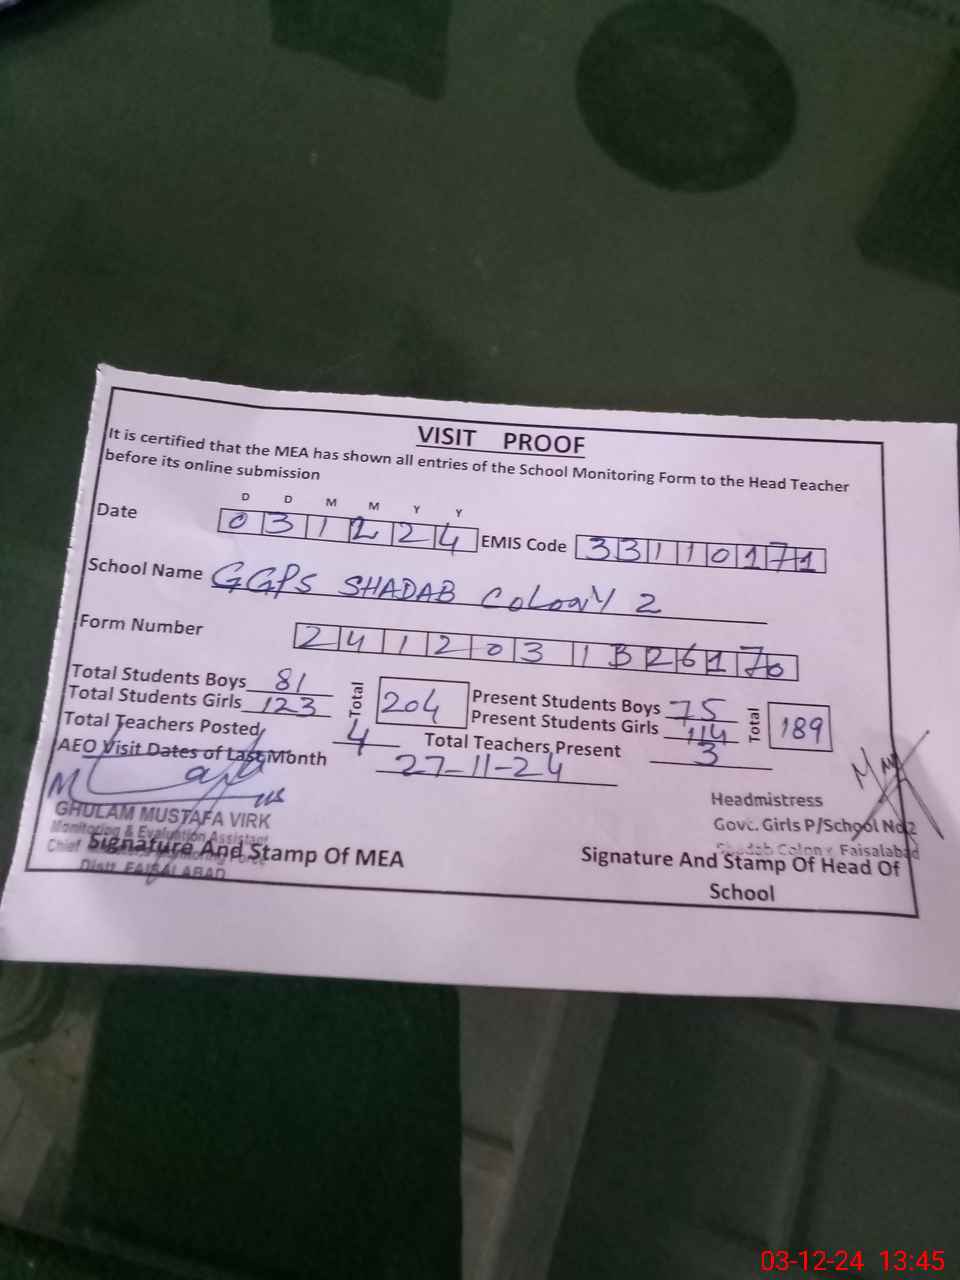 VISIT PROOF
It is certified that the MEA has shown all entries of the School Monitoring Form to the Head Teacher
before its online submission
D D M M Y Y
Date 0 3 1 2 2 4 EMIS Code 3 3 1 1 0 1 7 1
School Name GGPS SHADAB Colony 2
Form Number 2 4 1 2 0 3 1
Total Students Boys 81 Total 204 Present Students Boys 75 Total 189
Total Students Girls 123 Present Students Girls 114
Total Teachers Posted 4 Total Teachers Present 3
AEO Visit Dates of Last Month 27-11-24
GHULAM MUSTAFA VIRK
Monitoring & Evaluation Assistant
Chief
Distt. FAISALABAD
Signature And Stamp Of MEA
Headmistress
Govt. Girls P/School No.2
Shadab Colony Faisalabad
Signature And Stamp Of Head Of
School
03-12-24 13:45